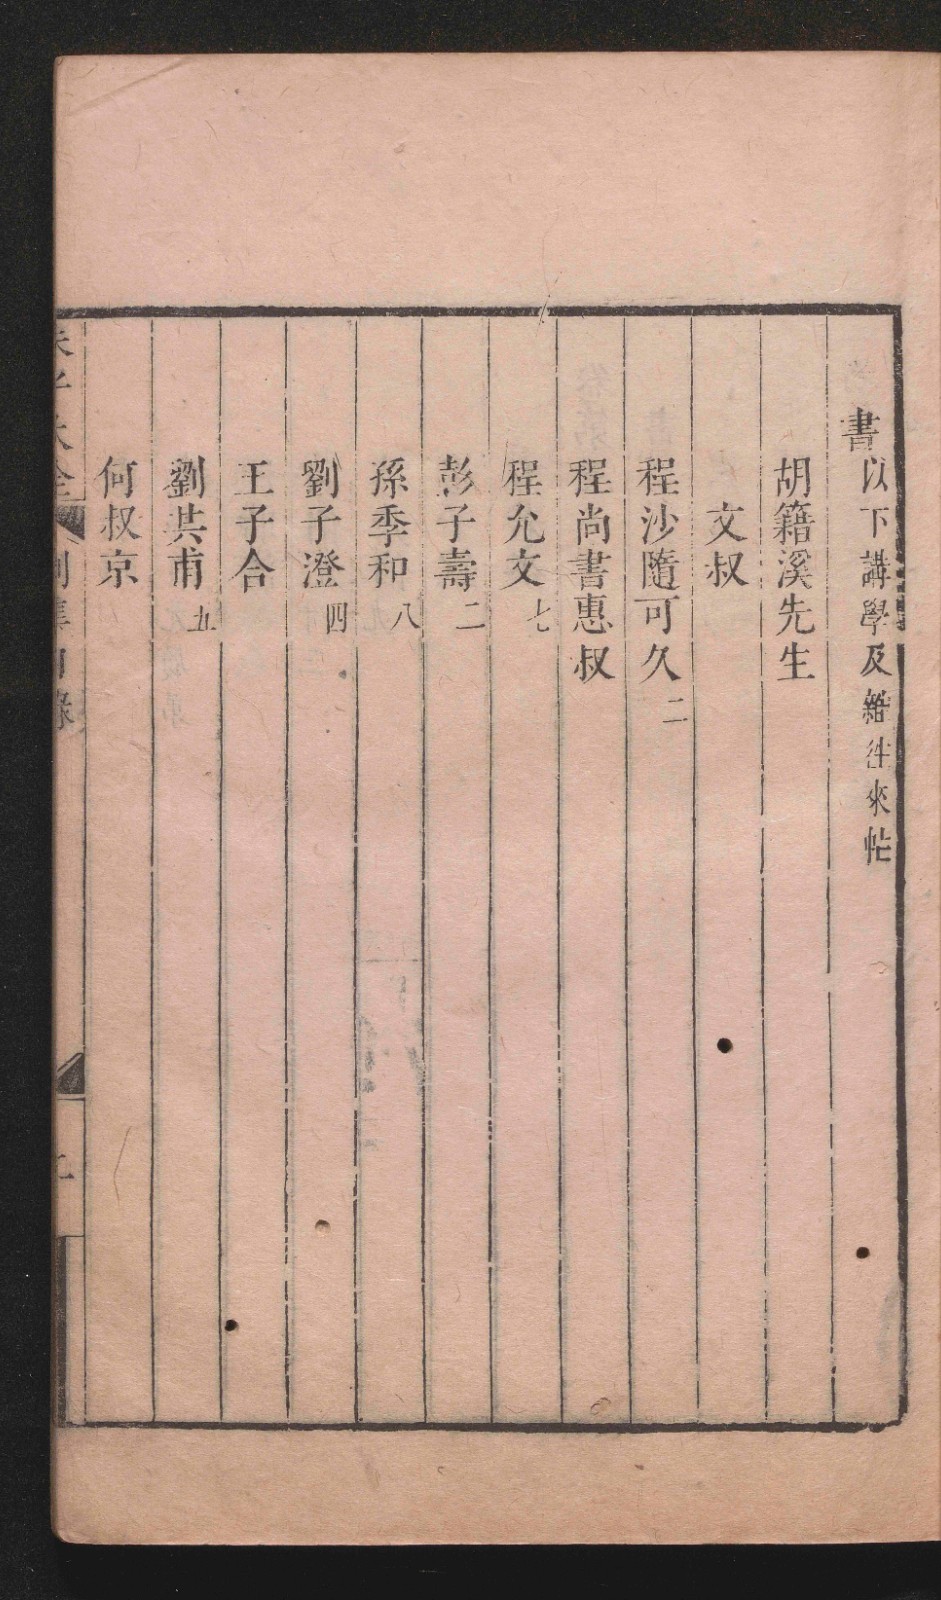 書以下講學及雜往來帖
胡籍溪先生
文叔
程沙隨可久二
程尚書惠叔
程允文七
彭子壽二
孫季和八
劉子澄四
王子合
劉其甫五
何叔京